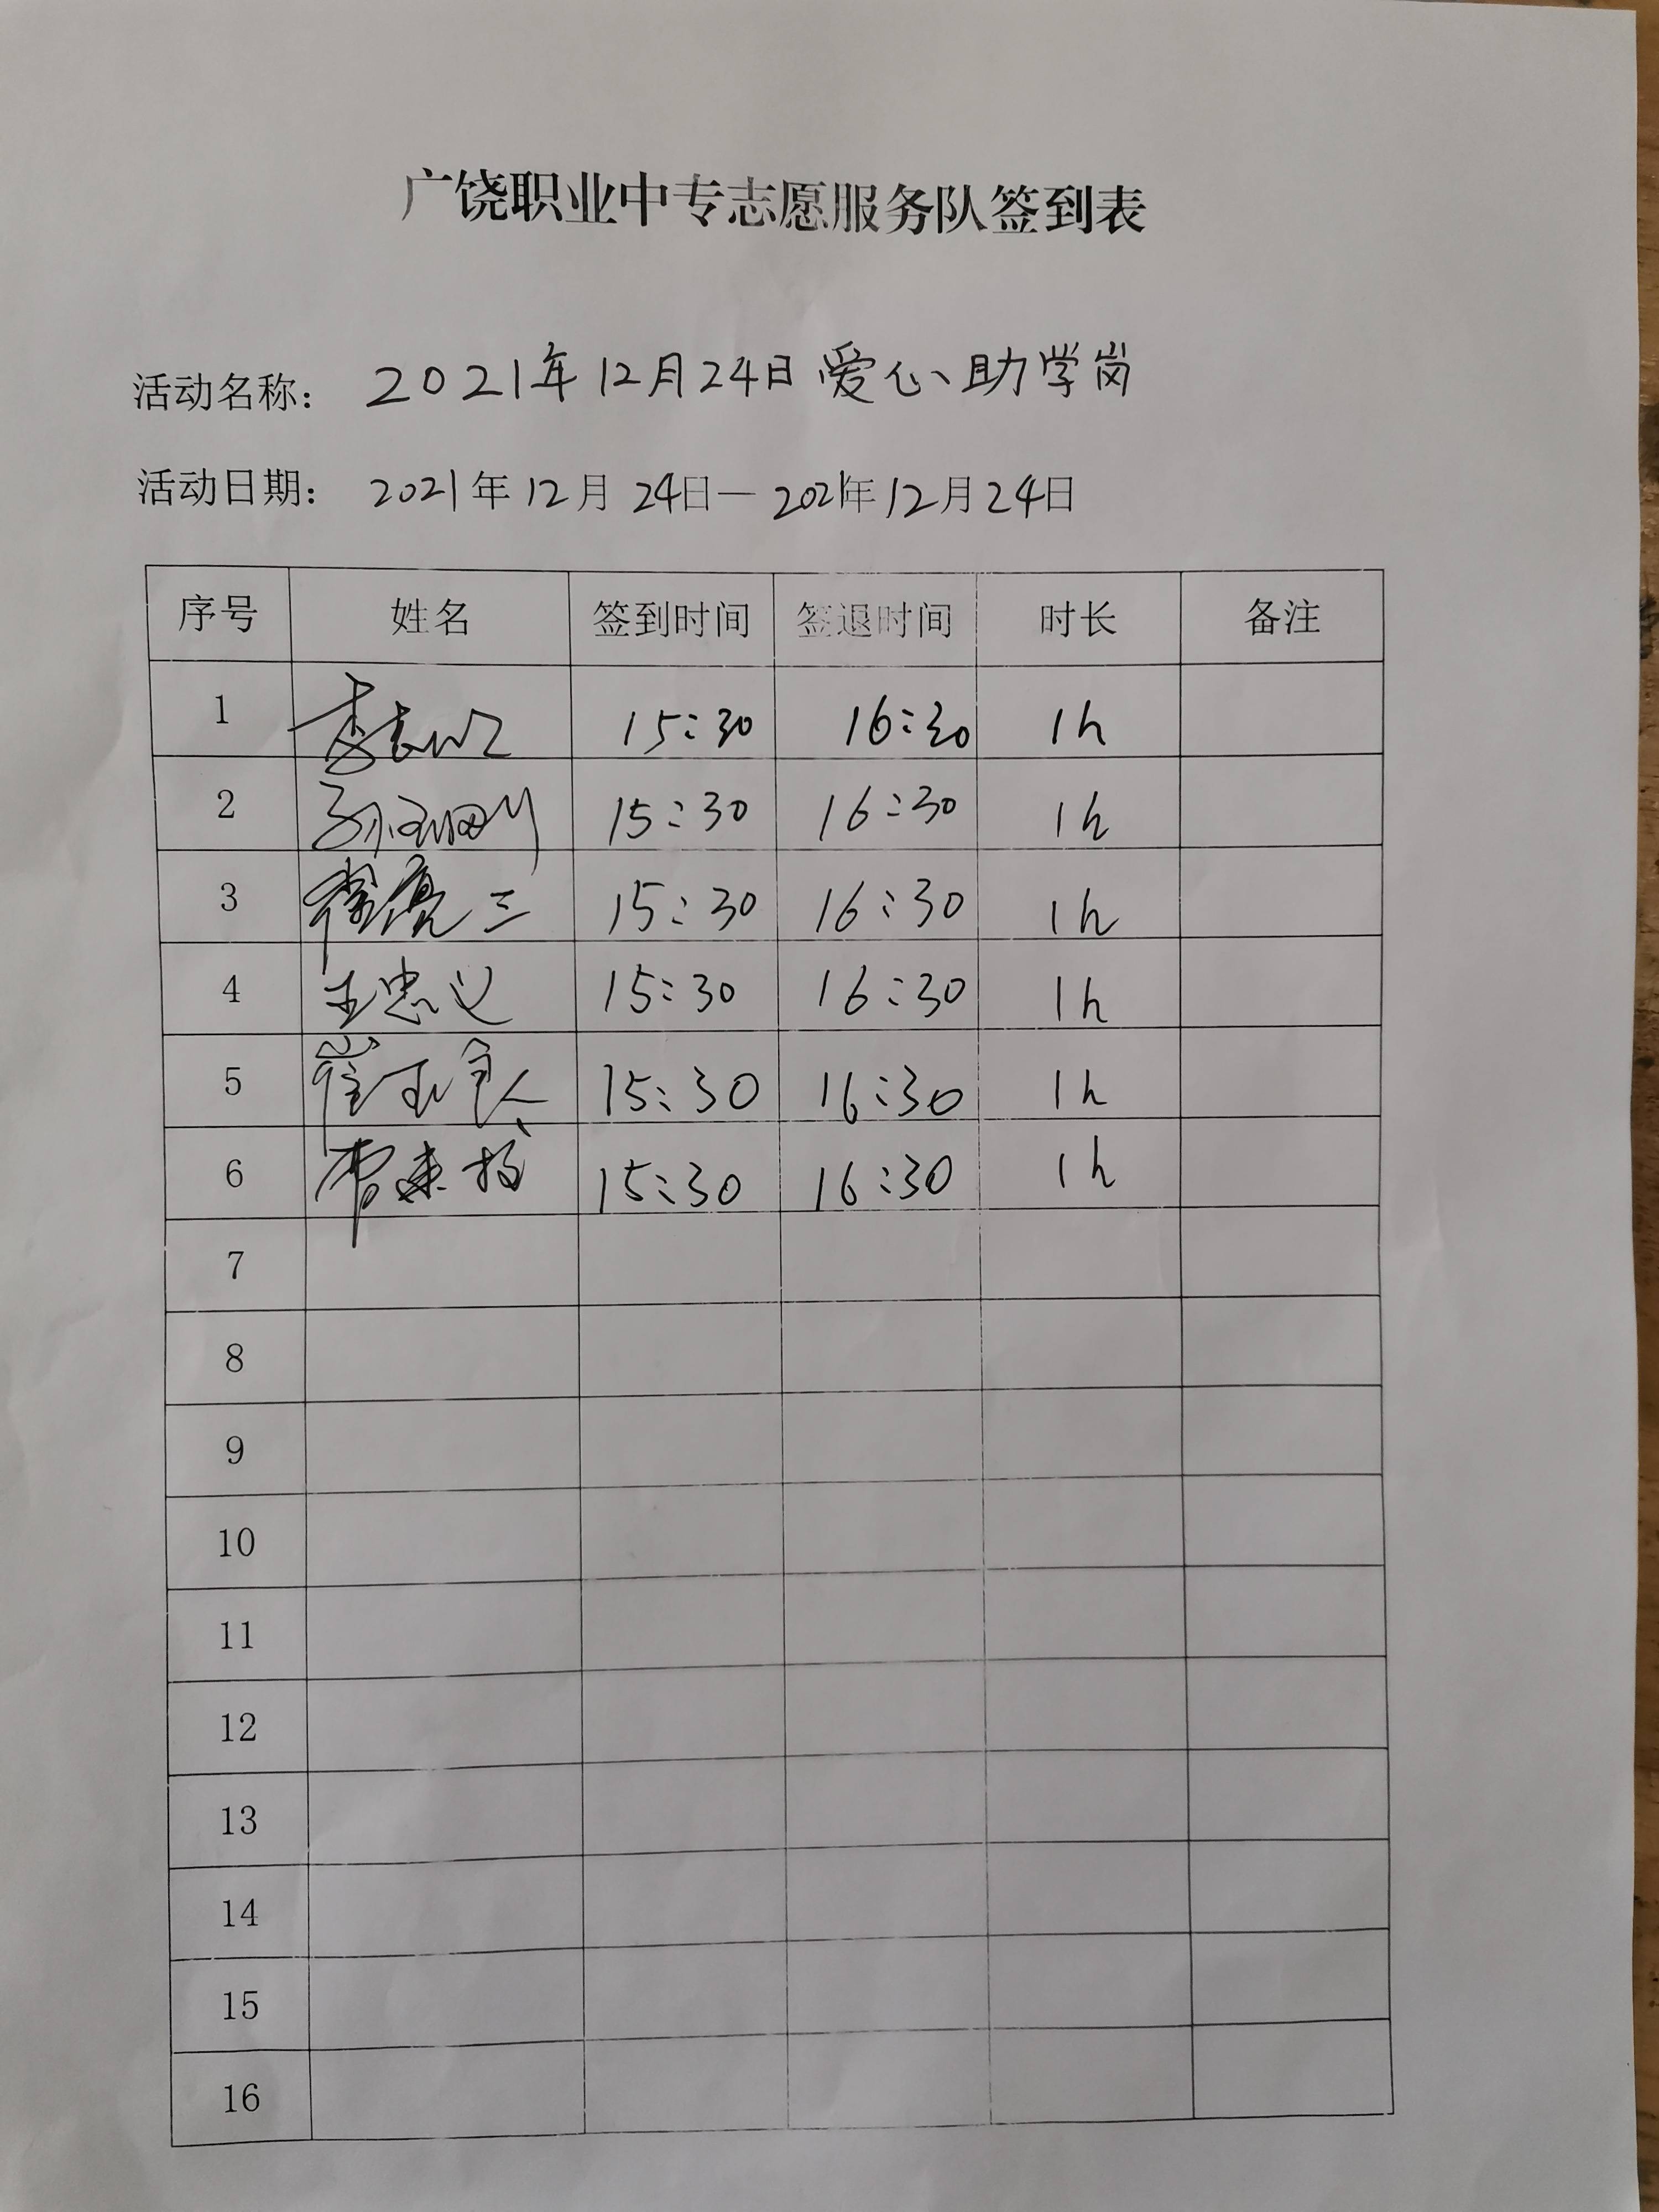 广饶职业中专志愿服务队签到表
活动名称： 2021年12月24日爱心助学岗
活动日期： 2021年12月24日—2021年12月24日
序号 姓名 签到时间 签退时间 时长 备注
1 15:30 16:30 1h
2 15:30 16:30 1h
3 15:30 16:30 1h
4 王忠义 15:30 16:30 1h
5 15:30 16:30 1h
6 15:30 16:30 1h
7
8
9
10
11
12
13
14
15
16